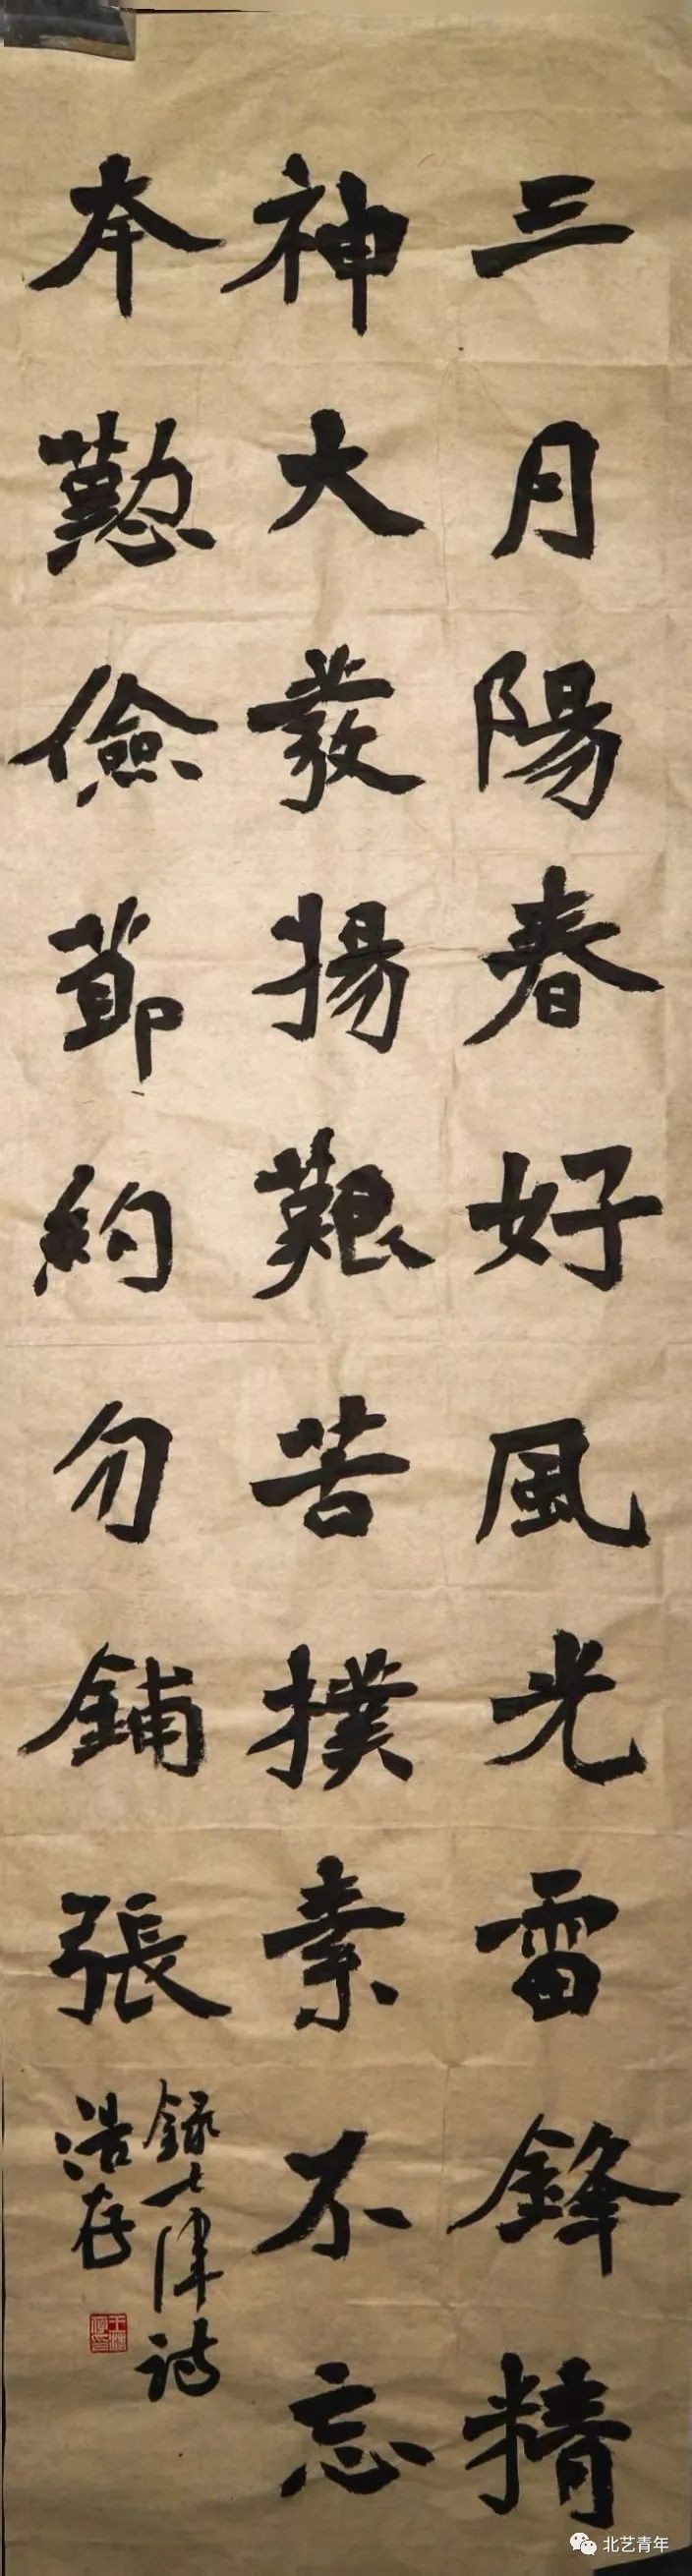 三月陽春好風光雷鋒精
神大發揚艱苦撲素不忘
本懃儉節約勿鋪張
錄七律詩
浩存
北艺青年